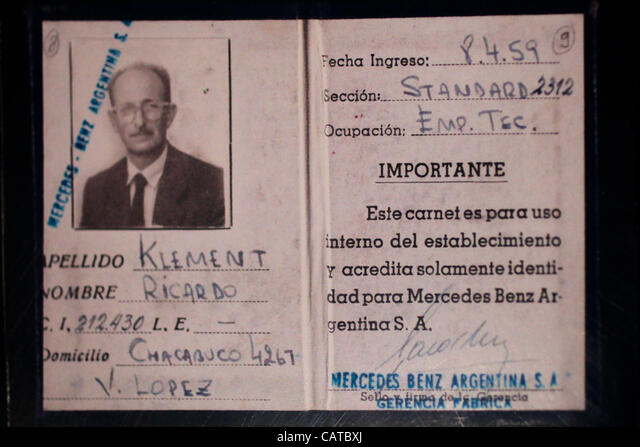 8
MERCEDES - BENZ ARGENTINA S. A.
APELLIDO KLEMENT
NOMBRE RICARDO
C. I. 212.430 L. E. —
Domicilio CHACABUCO 4267
V. LOPEZ
9
Fecha Ingreso: 8.4.59
Sección: STANDARD 2312
Ocupación: EMP. TEC.
IMPORTANTE
Este carnet es para uso
interno del establecimiento
y acredita solamente identi-
dad para Mercedes Benz Ar-
gentina S. A.
MERCEDES BENZ ARGENTINA S. A.
Sello y firma de la Gerencia
GERENCIA FABRICA
alamy
Image ID: CATBXJ
www.alamy.com